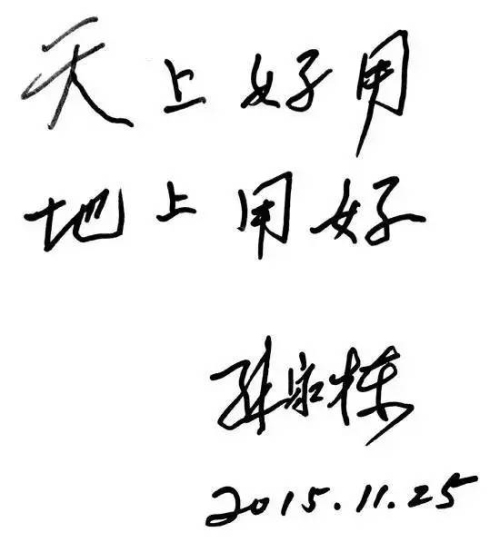 天上好用
地上用好
孙家栋
2015.11.25